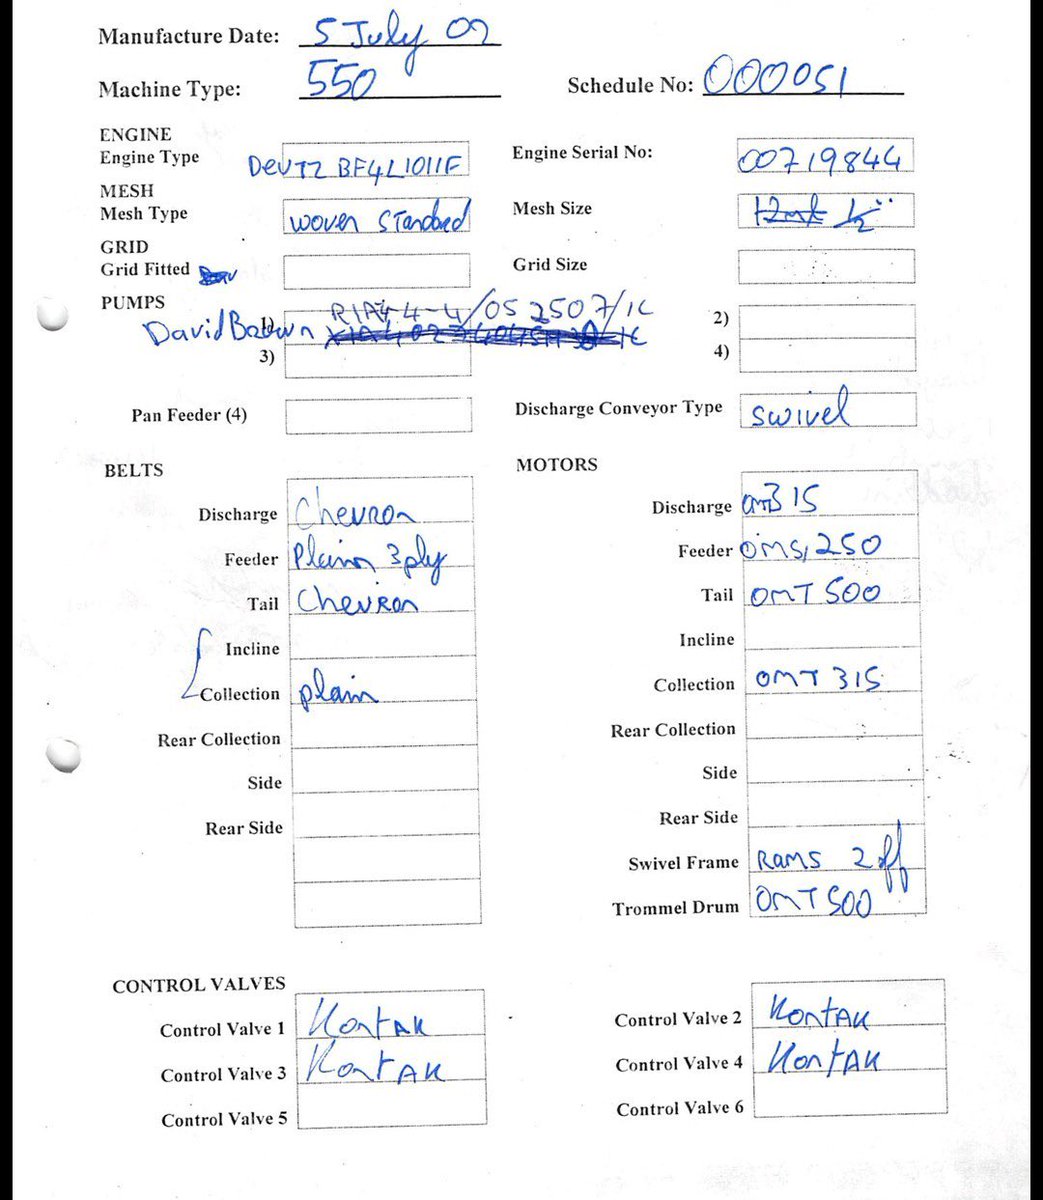 Manufacture Date: 5 July 07
Machine Type: 550 Schedule No: 000051
ENGINE
Engine Type DEUTZ BF4L1011F Engine Serial No: 00719844
MESH
Mesh Type WOVEN STANDARD Mesh Size 1/2"
GRID
Grid Fitted Grid Size
PUMPS
David Brown 1) R1A4-4-4/05 2507/1C 2)
3) 4)
Pan Feeder (4) Discharge Conveyor Type Swivel
BELTS MOTORS
Discharge Chevron Discharge OMT315
Feeder Plain 3ply Feeder OMS,250
Tail Chevron Tail OMT 500
Incline Incline
Collection plain Collection OMT 315
Rear Collection Rear Collection
Side Side
Rear Side Rear Side
Swivel Frame RAMS 2 off
Trommel Drum OMT 500
CONTROL VALVES
Control Valve 1 KontAK Control Valve 2 KontAK
Control Valve 3 KontAK Control Valve 4 KontAK
Control Valve 5 Control Valve 6